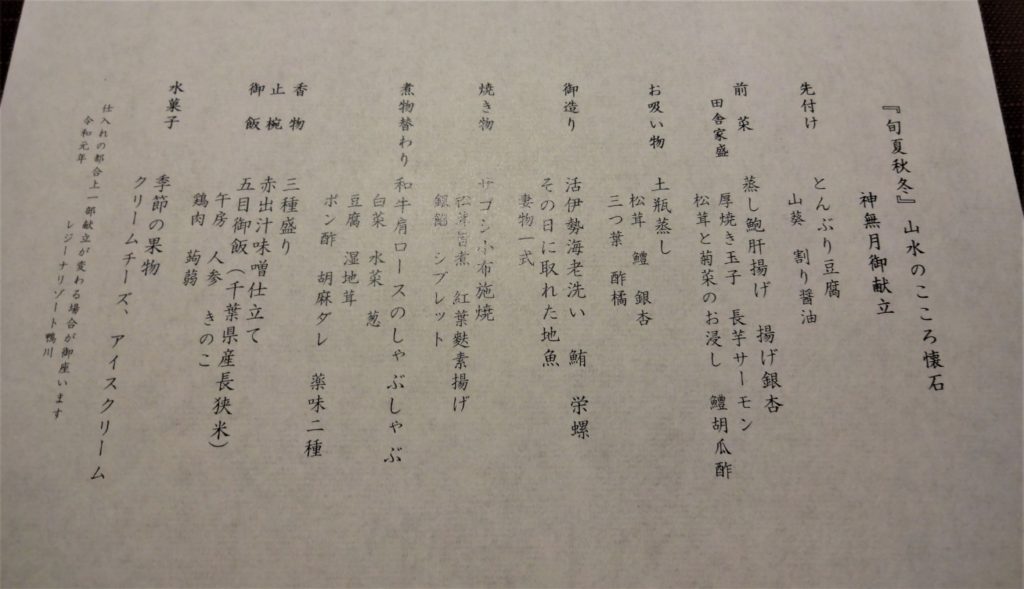 『旬夏秋冬』 山水のこころ懐石
神無月御献立
先付け とんぶり豆腐
山葵 割り醤油
前菜 蒸し鮑肝揚げ 揚げ銀杏
田舎家盛 厚焼き玉子 長芋サーモン
松茸と菊菜のお浸し 鱧胡瓜酢
お吸い物 土瓶蒸し
松茸 鱧 銀杏
三つ葉 酢橘
御造り 活伊勢海老洗い 鮪 栄螺
その日に取れた地魚
妻物一式
焼き物 サゴシ小布施焼
松茸旨煮 紅葉麩素揚げ
シブレット
煮物替わり 和牛肩ロースのしゃぶしゃぶ
白菜 水菜 葱
豆腐 湿地茸
ポン酢 胡麻ダレ 薬味二種
香物 三種盛り
止椀 赤出汁味噌仕立て
御飯 五目御飯（千葉県産長狭米）
午房 人参 きのこ
鶏肉 蒟蒻
水菓子 季節の果物
クリームチーズ、アイスクリーム
仕入れの都合上一部献立が変わる場合が御座います
令和元年 レジーナリゾート鴨川